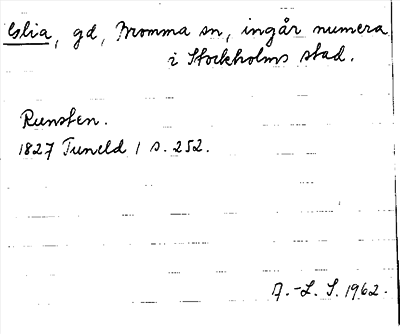 Glia, gd, Bromma sn, ingår numera
i Stockholms stad.
Runsten.
1827 Tuneld 1 s. 252.
A.-L. S. 1962.